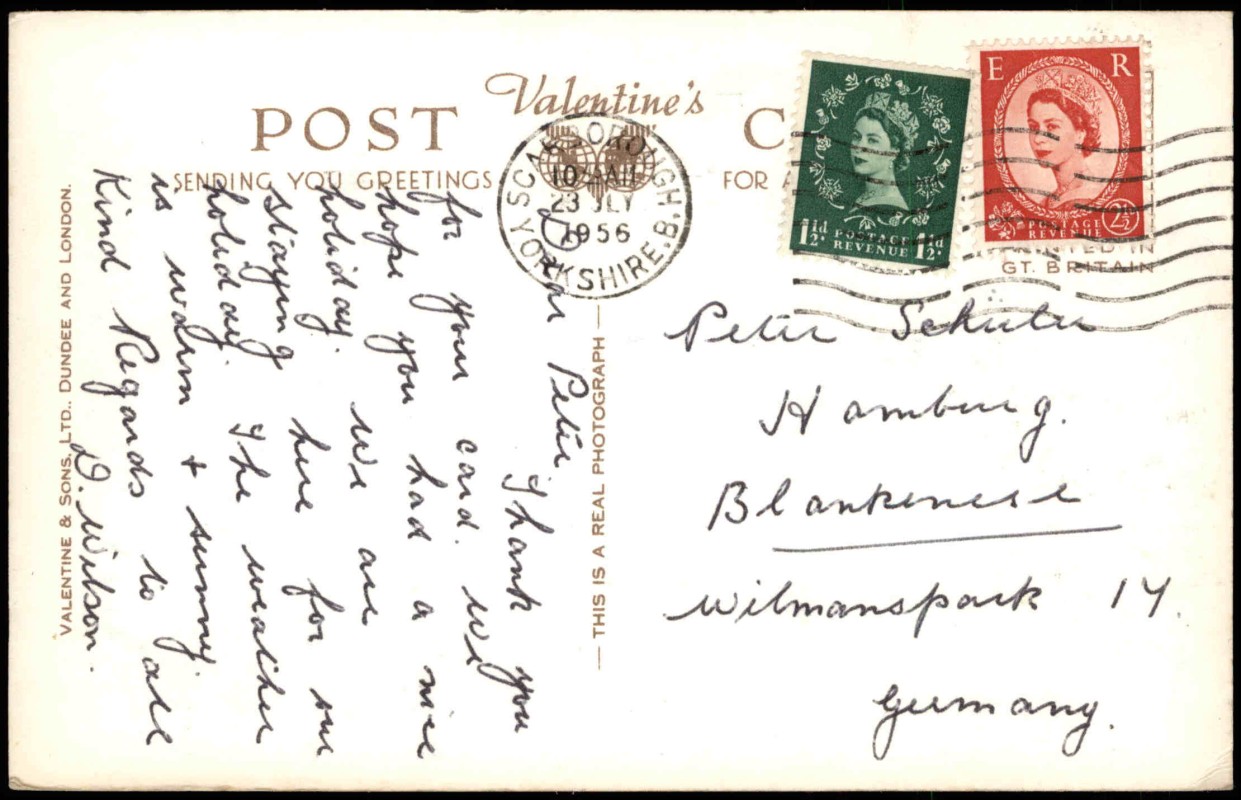 Valentine's
POST C
SENDING YOU GREETINGS FOR A
SCARBOROUGH.B.H
YORKSHIRE.
10 - AM
23 JLY
1956
1½d POSTAGE REVENUE 1½d
E R
POSTAGE REVENUE 2½D
PRINTED IN
GT. BRITAIN
Dear Peter
Thank you
for your card. We
hope you had a nice
holiday. We are
staying here for our
holiday. The weather
is warm + sunny.
Kind Regards to all
D. Wilson.
VALENTINE & SONS, LTD., DUNDEE AND LONDON.
THIS IS A REAL PHOTOGRAPH
Peter Schüter
Hamburg.
Blankenese
Wilmanspark 14.
Germany.